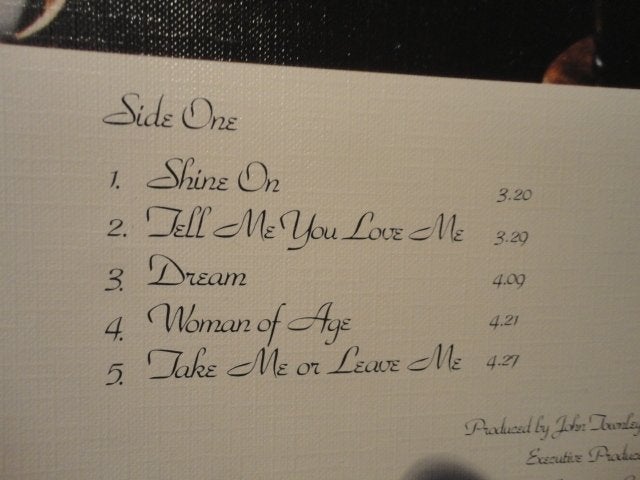 Side One
1. Shine On 3.20
2. Tell Me You Love Me 3.29
3. Dream 4.09
4. Woman of Age 4.21
5. Take Me or Leave Me 4.27
Produced by John Townley
Executive